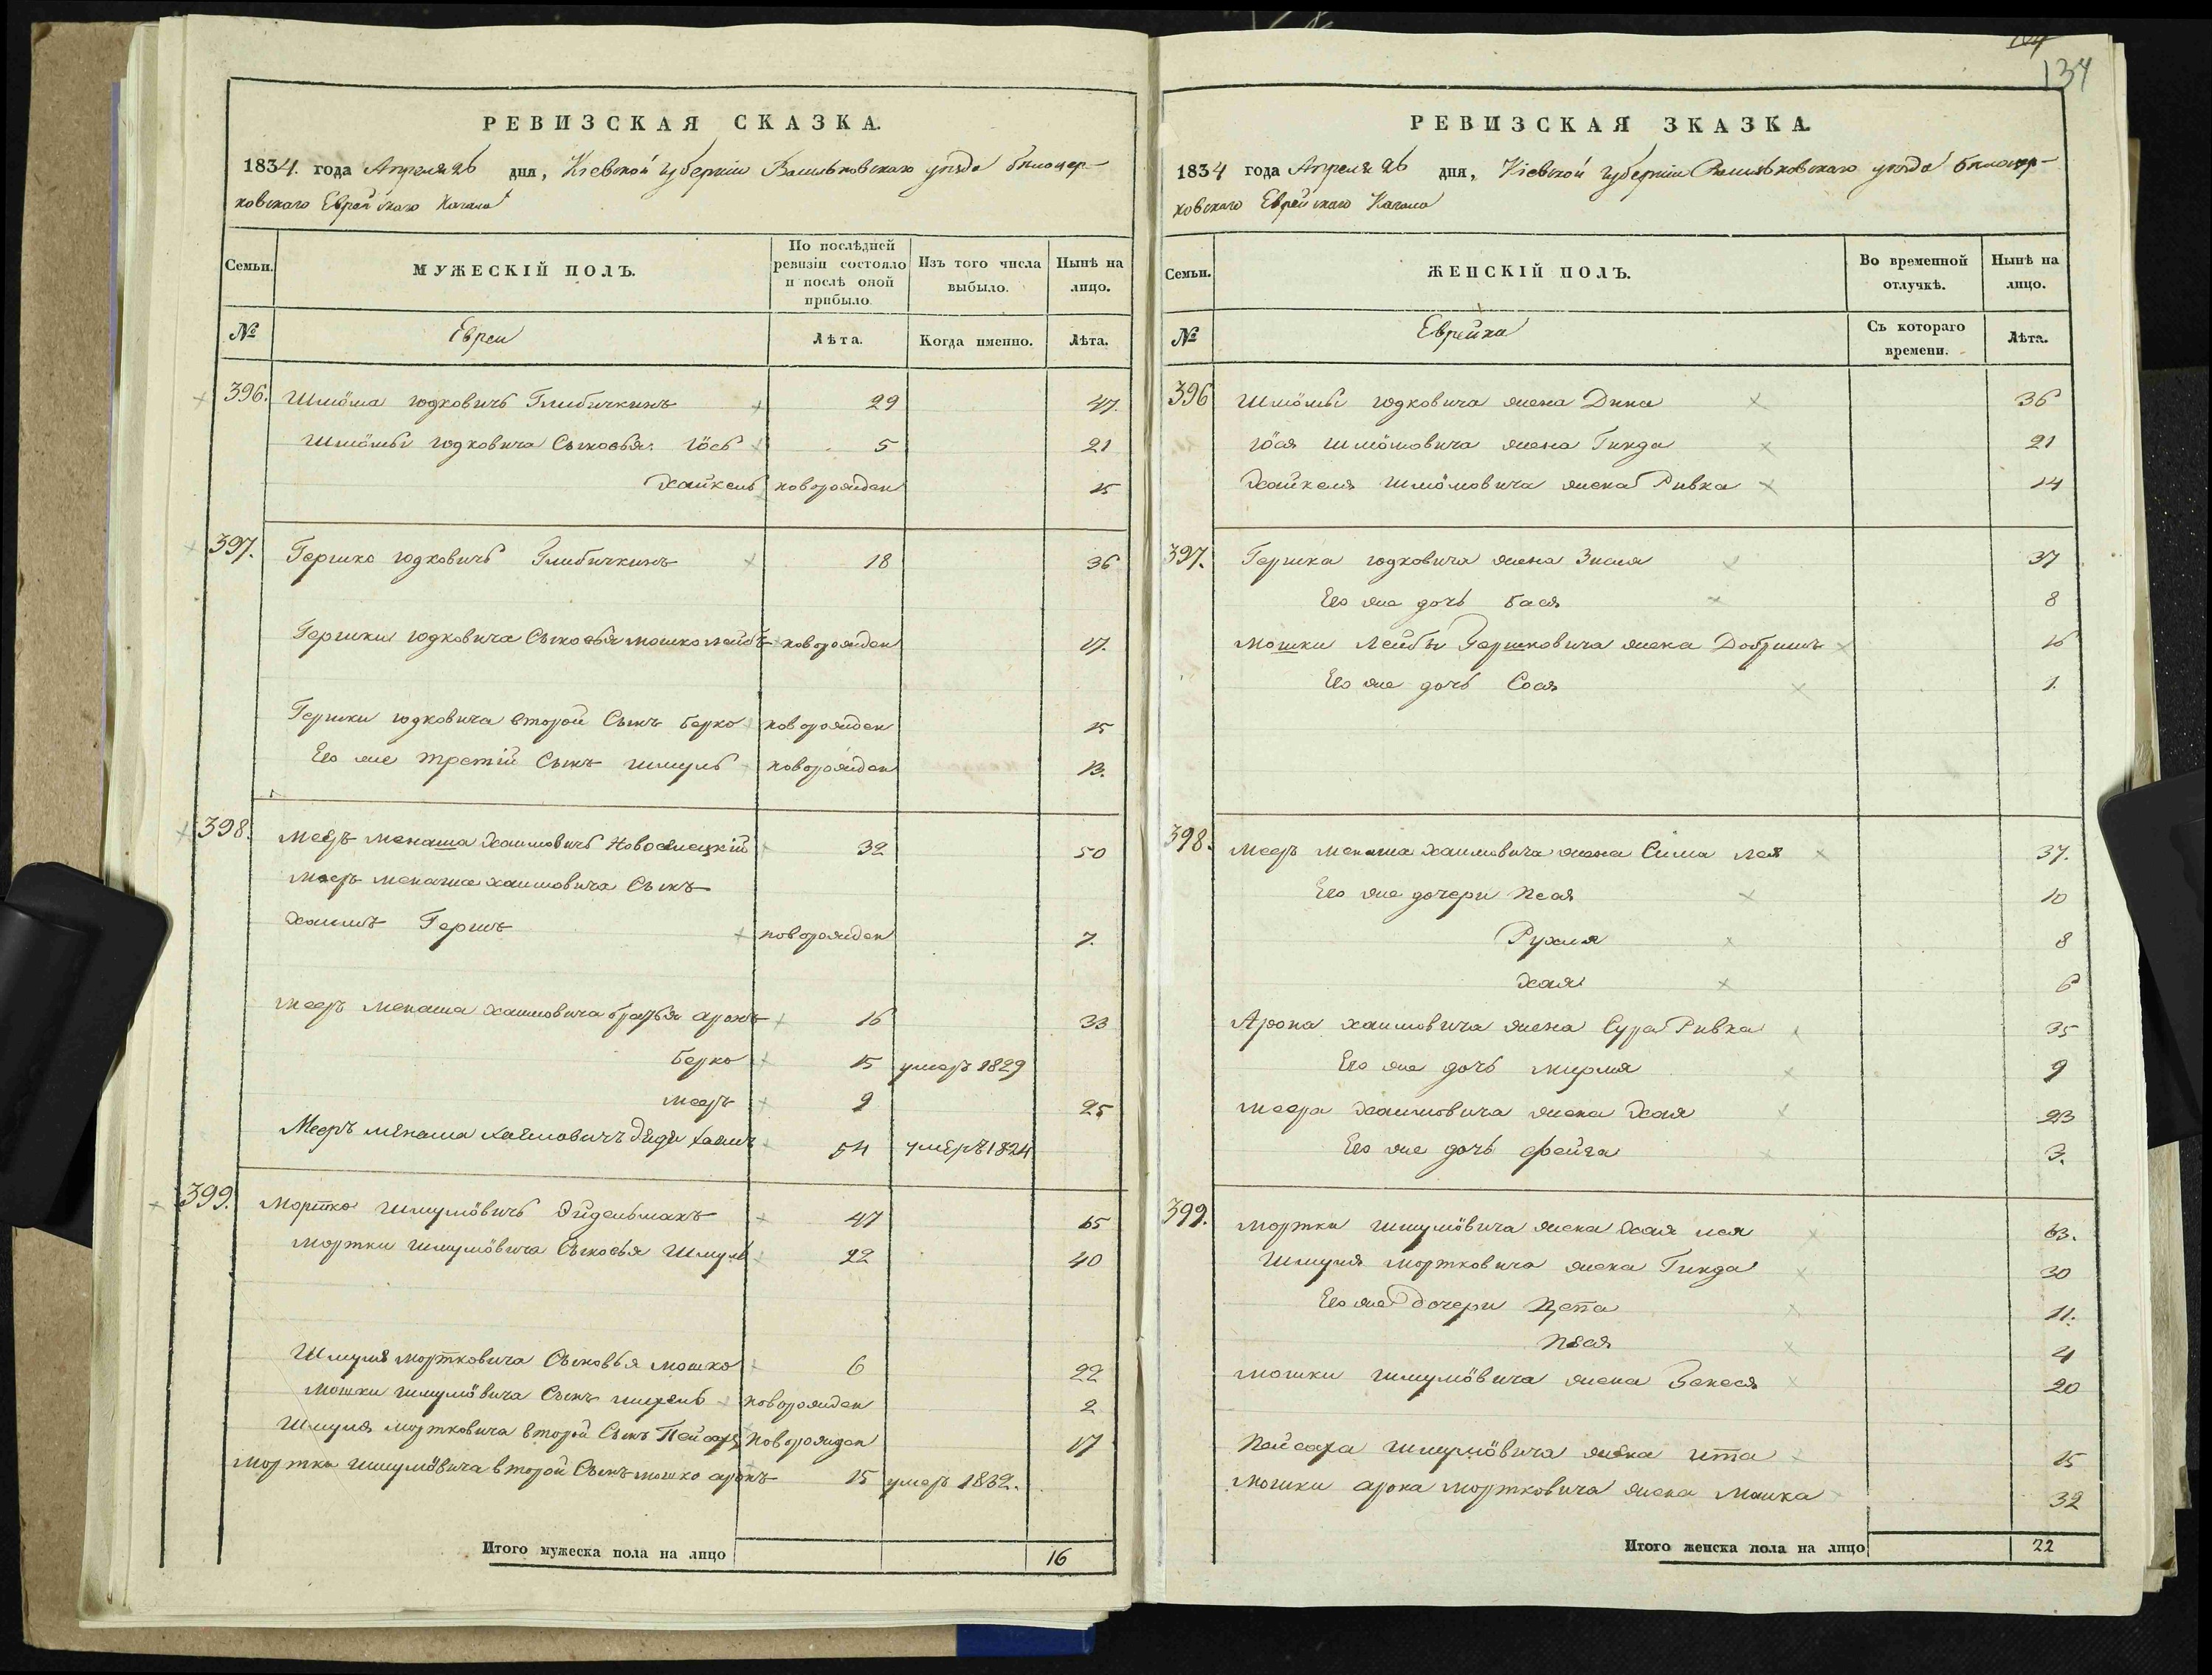 134
РЕВИЗСКАЯ СКАЗКА.
1834. года Апреля 26 дня, Кіевской Губерніи Васильковскаго уѣзда бѣлоцер-
ковскаго Еврейскаго Кагала
Семьи.
МУЖЕСКІЙ ПОЛЪ.
По послѣдней ревизіи состояло и послѣ оной прибыло.
Изъ того числа выбыло.
Нынѣ на лицо.
№ Евреи Лѣта. Когда именно. Лѣта.
396. Шлiома Юдковичь Глибичкинъ 29 47.
Шлiомы Юдковича Сыновья Iось 5 21
Хайкель новорожден 15
397. Гершко Юдковичь Глибичкинъ 18 36
Гершки Юдковича Сыновья мошко лейбъ новорожден 17.
Гершки Юдковича второй Сынъ берко новорожден 15
Его же третій Сынъ шмуль новорожден 13.
398. Мееръ менаша Хаимовичь Новоселецкій 32 50
меер менаша хаимовича Сынъ
Хаимъ Гершъ новорожден 7.
меер менаша хаимовича братья аронъ 16 33
берко 15 умеръ 1829
меер 9 25
Меерь менаша хаимовичъ дядя хаимъ 54 умеръ 1824
399. мортко шмулiовичь Эйдельманъ 47 65
мортки шмулiовича Сыновья Шмуль 22 40
Шмуля мортковича Сыновья мошко 6 22
мошки шмулiовича Сынъ новорожден 2
Шмуля мортковича второй Сынъ Пейсах новорожден 17
мортки шмулiовича второй Сынъ мошко аронъ 15 умеръ 1832.
Итого мужеска пола на лицо 16
РЕВИЗСКАЯ ЗКАЗКА.
1834 года Апреля 26 дня, Кіевской Губерніи Васильковскаго уѣзда бѣлоцер-
ковскаго Еврейскаго Кагала
Семьи.
ЖЕНСКІЙ ПОЛЪ.
Во временной отлучкѣ.
Нынѣ на лицо.
№ Еврейка Съ котораго времени. Лѣта.
396 Шлiомы Юдковича жена Дина 36
Iося шлiомовича жена Гинда 21
Хайкеля шлiомовича жена Ривка 14
397. Гершка Юдковича жена Зисля 37
Его же дочь бася 8
мошки лейбы Гершковича жена Добришъ 16
Его же дочь Сося 1.
398. меер менаша хаимовича жена Сима лея 37.
Его же дочери Песя 10
Рухля 8
хая 6
Арона хаимовича жена Сура Ривка 35
Его же дочь мирля 9
меера хаимовича жена хая 23
Его же дочь фейга 3.
399. мортки шмулiовича жена хая лея 63.
Шмуля мортковича жена Гинда 30
Его же дочери Цепа 11.
Песя 4
мошки шмулiовича жена 20
Пейсаха шмулiовича жена ита 15
мошки арона мортковича жена малка 32
Итого женска пола на лицо 22